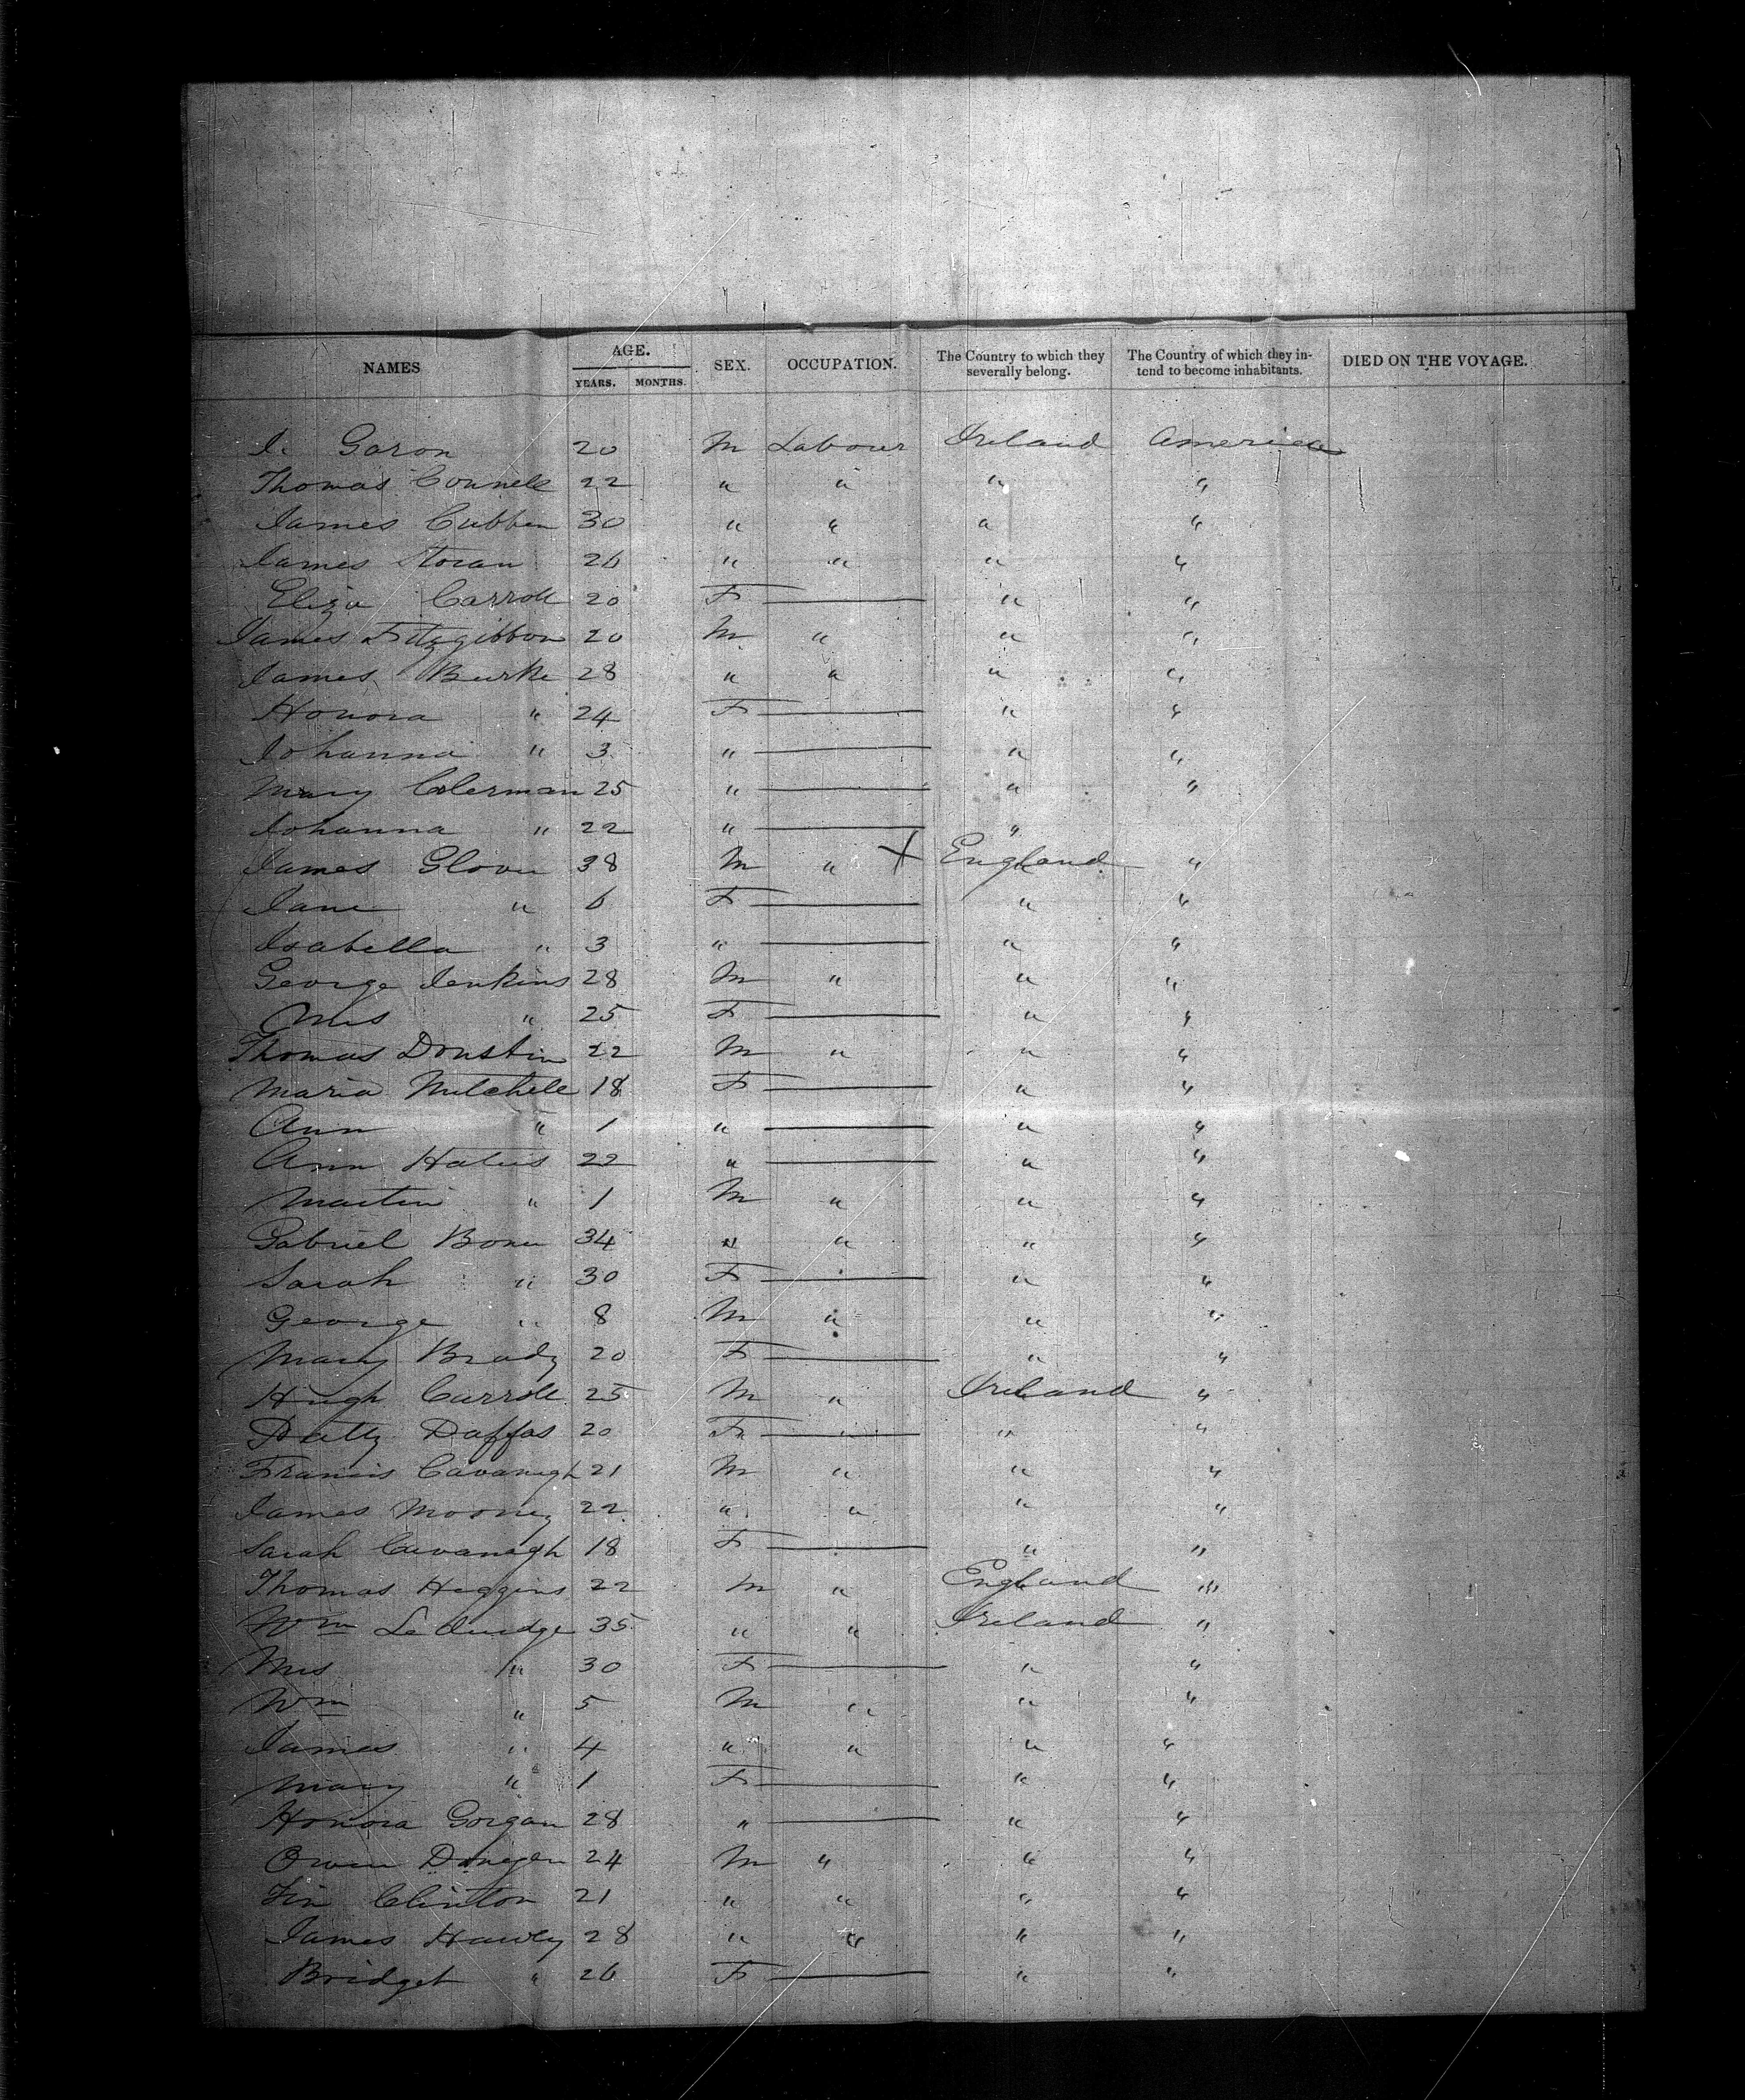 NAMES AGE. YEARS. MONTHS. SEX. OCCUPATION. The Country to which they severally belong. The Country of which they intend to become inhabitants. DIED ON THE VOYAGE.
J. Garon 20 M Labour Ireland America
Thomas Connell 22 " " " "
James Cubben 30 " " " "
James Storan 26 " " " "
Eliza Carroll 20 F — " "
James Fitzgibbon 20 M " " "
James Burke 28 " " " "
Honora " 24 F — " "
Johanna " 3 " — " "
Mary Colerman 25 " — " "
Johanna " 22 " — "
James Glover 38 M " X England "
Jane " 6 F — " "
Isabella " 3 " — " "
George Jenkins 28 M " " "
Mrs " 25 F — " "
Thomas Donstin 22 M " " "
Maria Mitchele 18 F — " "
Ann " 1 " — " "
Ann 22 " — " "
Martin " 1 M " " "
Gabriel 34 " " " "
Sarah " 30 F — " "
George " 8 M " " "
Mary Brady 20 F — " "
Hugh Carroll 25 M " Ireland "
Daffas 20 F — " "
Francis Cavanagh 21 M " " "
James Mooney 22 " " " "
Sarah Cavanagh 18 F — " "
Thomas Higgins 22 M " England "
Wm 35 " " Ireland "
Mrs " 30 F — " "
Wm " 5 M " " "
James " 4 " " " "
Mary " 1 F — " "
Honora Gorgan 28 " — " "
Owen Donegan 24 M " " "
Clinton 21 " " " "
James Hawly 28 " " " "
Bridget " 26 F — " "